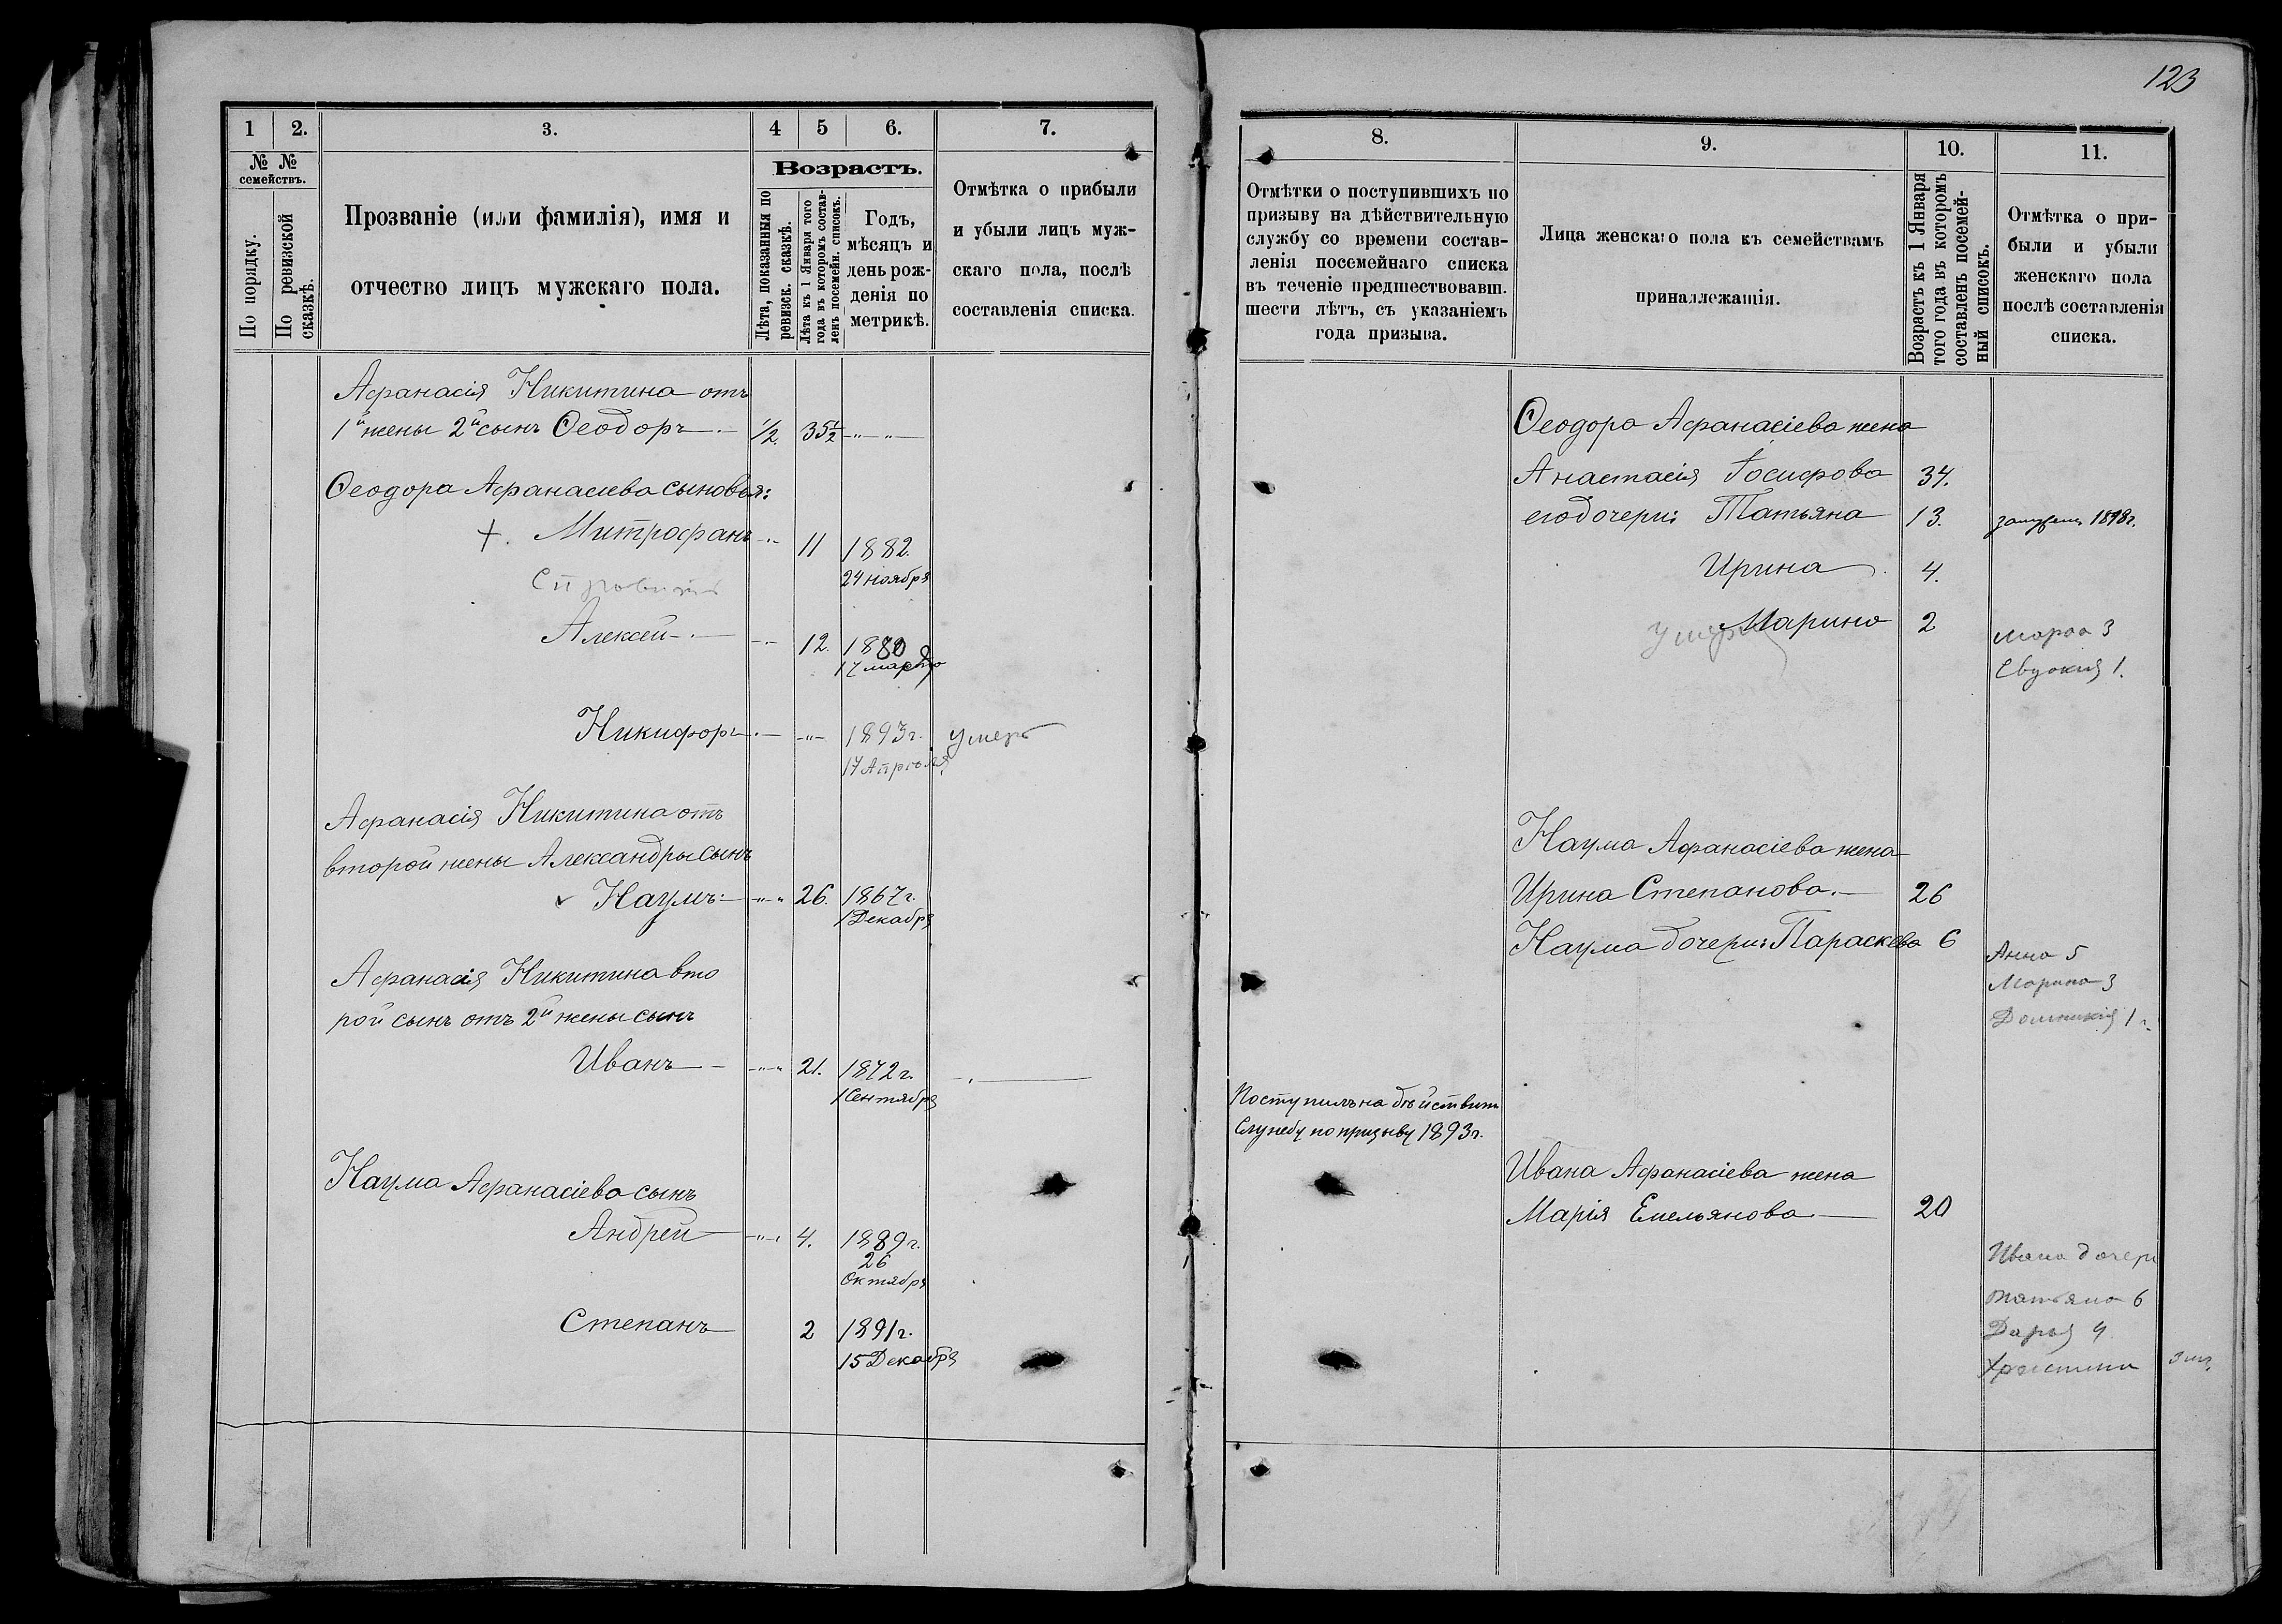 123
1
2.
3.
4
5
6.
7.
№ №
семействъ.
По порядку.
По ревизской
сказкѣ.
Прозваніе (или фамилія), имя и
отчество лицъ мужскаго пола.
Возрастъ.
Лѣта, показанныя по
ревизск. сказкѣ.
Лѣта къ 1 Января того
года въ которомъ состав-
ленъ посемейн. списокъ.
Годъ,
мѣсяцъ и
день рож-
денія по
метрикѣ.
Отмѣтка о прибыли
и убыли лицъ муж-
скаго пола, послѣ
составленія списка.
Афанасія Никитина отъ
1й жены 2й сынъ Ѳеодоръ 1/2. 35 1/2
Ѳеодора Афанасиева сыновья:
+. Митрофанъ 11 1882.
24 ноября
Алексей 12. 1880
17 марта
Никифоръ 1893г. умеръ
17 Апрѣля
Афанасія Никитина отъ
второй жены Александры сынъ
Наумъ 26. 1867г.
1 Декабря
Афанасія Никитина вто
рой сынъ отъ 2й жены сынъ
Иванъ 21. 1872г.
1 Сентября
Наума Афанасіева сынъ
Андрей 4. 1889г.
26
Октября
Степанъ 2 1891г.
15 Декабря
8.
9.
10.
11.
Отмѣтки о поступившихъ по
призыву на дѣйствительную
службу со времени состав-
ленія посемейнаго списка
въ теченіе предшествовавш.
шести лѣтъ, съ указаніемъ
года призыва.
Лица женскаго пола къ семействамъ
принадлежащія.
Возрастъ къ 1 Января
того года въ которомъ
составленъ посемей-
ный списокъ.
Отмѣтка о при-
были и убыли
женскаго пола
послѣ составленія
списка.
Ѳеодора Афанасіева жена
Анастасія Іосифова 34.
его дочери: Татьяна 13. 1898г.
Ирина 4.
Марина 2 Марѳа 3
Евдокия 1.
Наума Афанасіева жена
Ирина Степанова. 26
Наума дочери: Параскева 6
Анна 5
Марина 3
Домникія 1 г.
Поступилъ на дѣйствит
службу по призыву 1893г.
Ивана Афанасіева жена
Марія Емельянова 20
Ивана дочери
Татьяна 6
Дарья 4
Христина